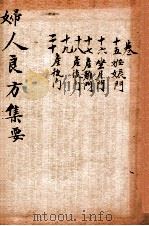 卷
十五妊娠門
十六坐月門
十七產難門
十八產後門
十九
二十產後門
婦人良方集要